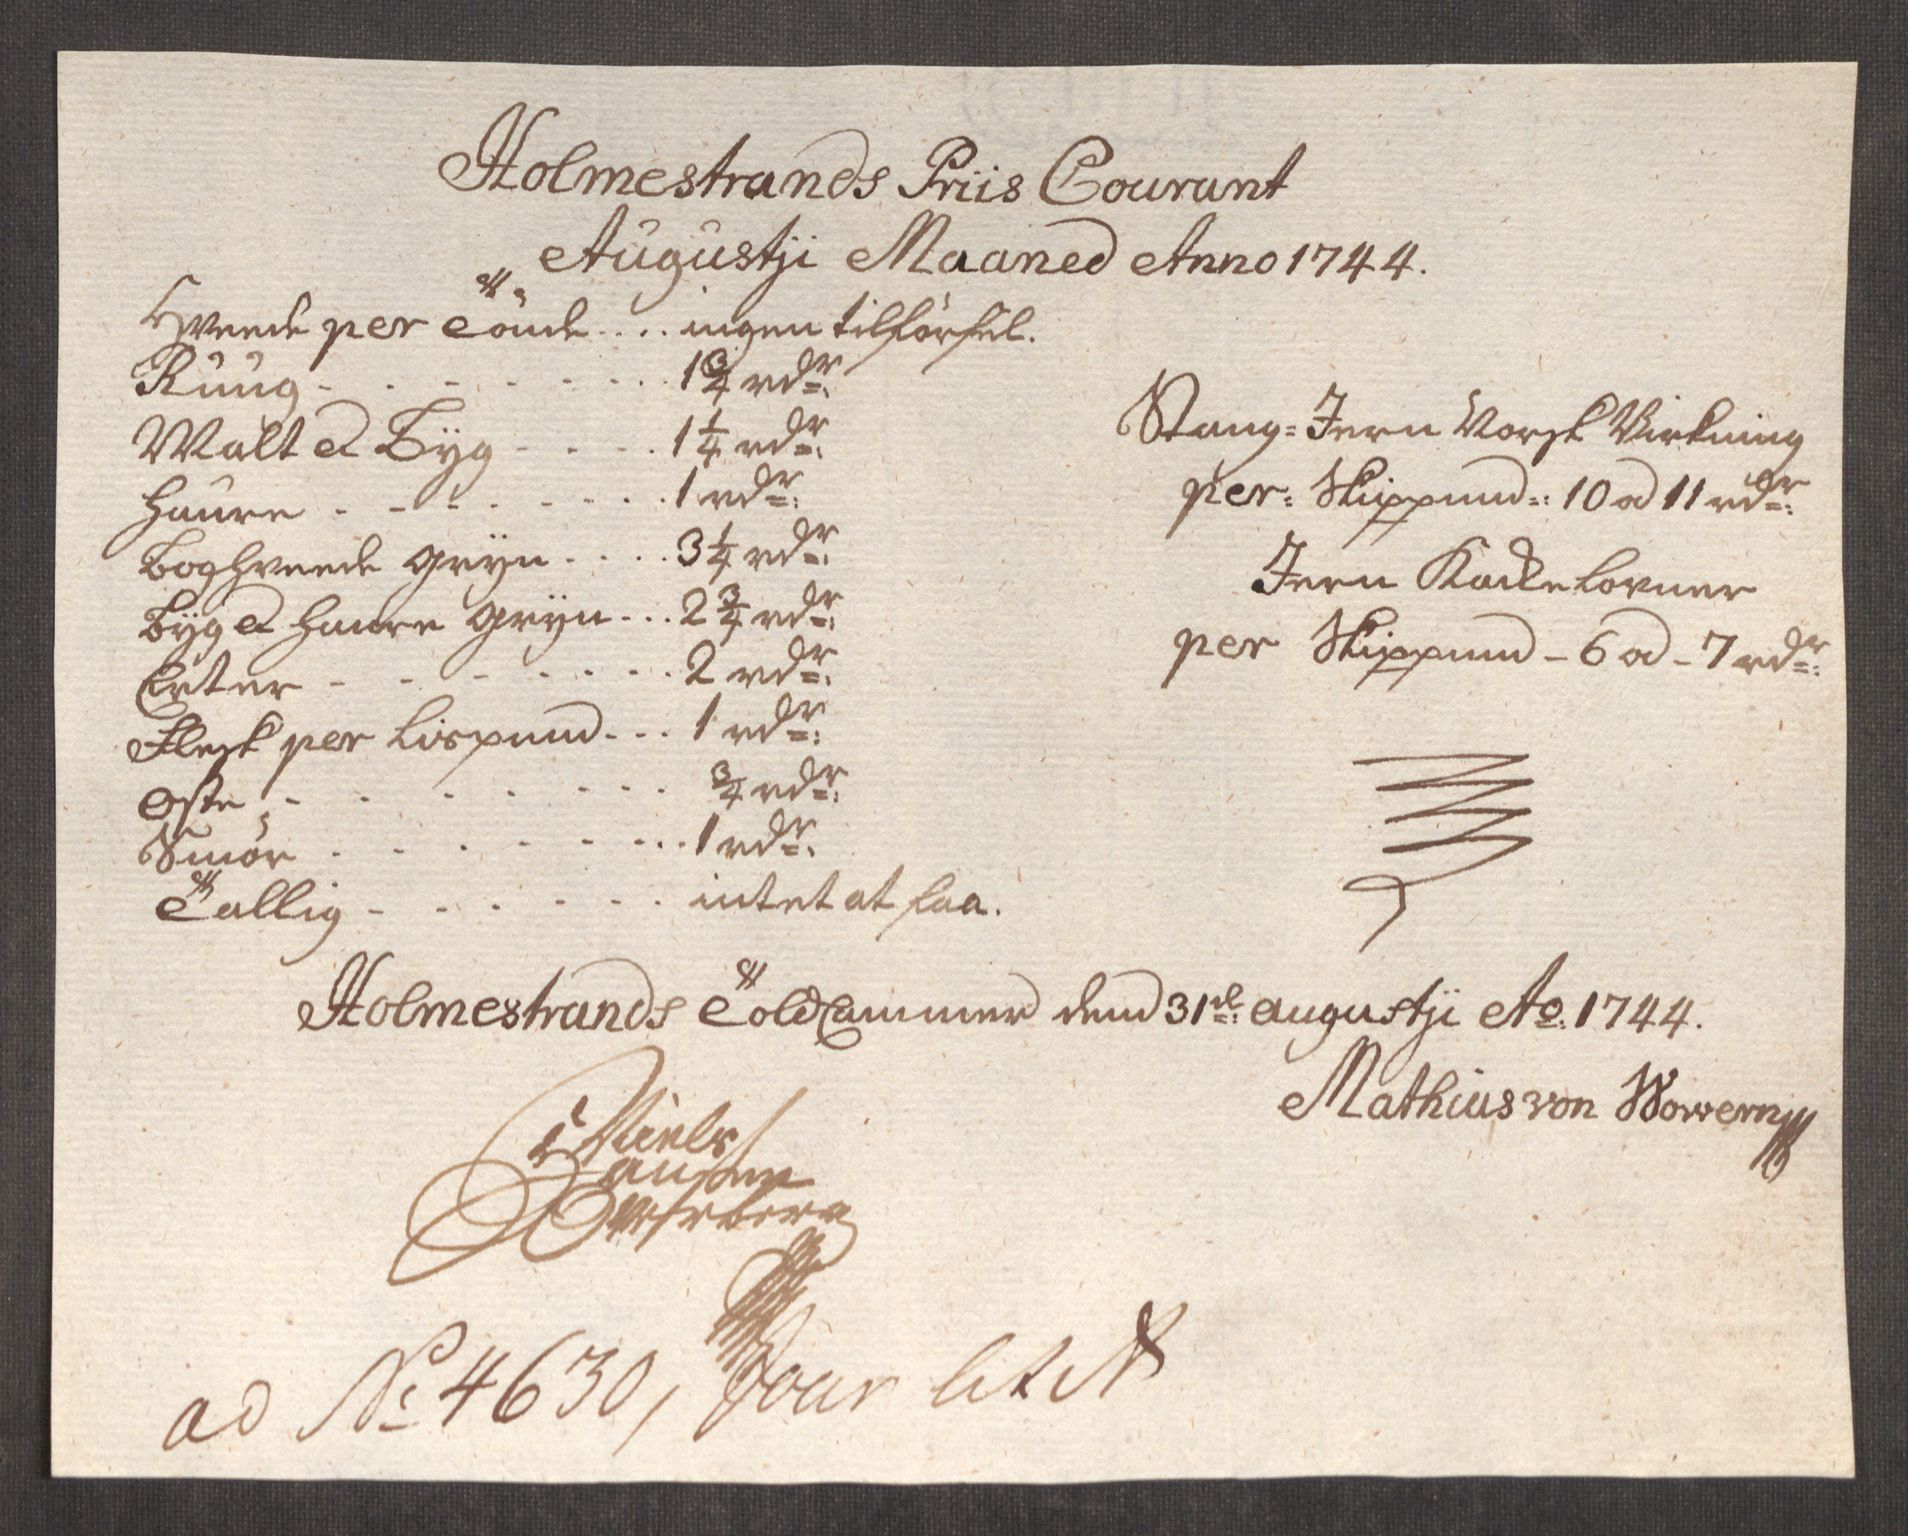 Holmestrands Priis Courant
Augustji Maaned Anno 1744.
Hveede per Tönde .... ingen tilförsel.
Ruug - - - - - - - 1 3/4 rdr:
Malt et Byg - - - - 1 1/4 rdr:
Haure - - - - - - - 1 rdr:
Boghveede gryn - - - - 3 1/4 rdr:
Byg et Haure gryn - - - 2 3/4 rdr:
Erter - - - - - - - 2 rdr:
Flesk per Lispund - - - 1 rdr:
Oste - - - - - - - 3/4 rdr:
Smör - - - - - - - 1 rdr:
Tallig - - - - - - intet at faa.
Stang= Jern Norsk Virkning
per: Skippund:: 10 ad 11 rdr:
Jern Kackelovner
per Skippund - 6 ad - 7 rdr:
Holmestrands ToldCammer dend 31de: augustji Ao: 1744.
Mathias von Wowern
Niels
Hansen
ad No: 4630, Jour lit A